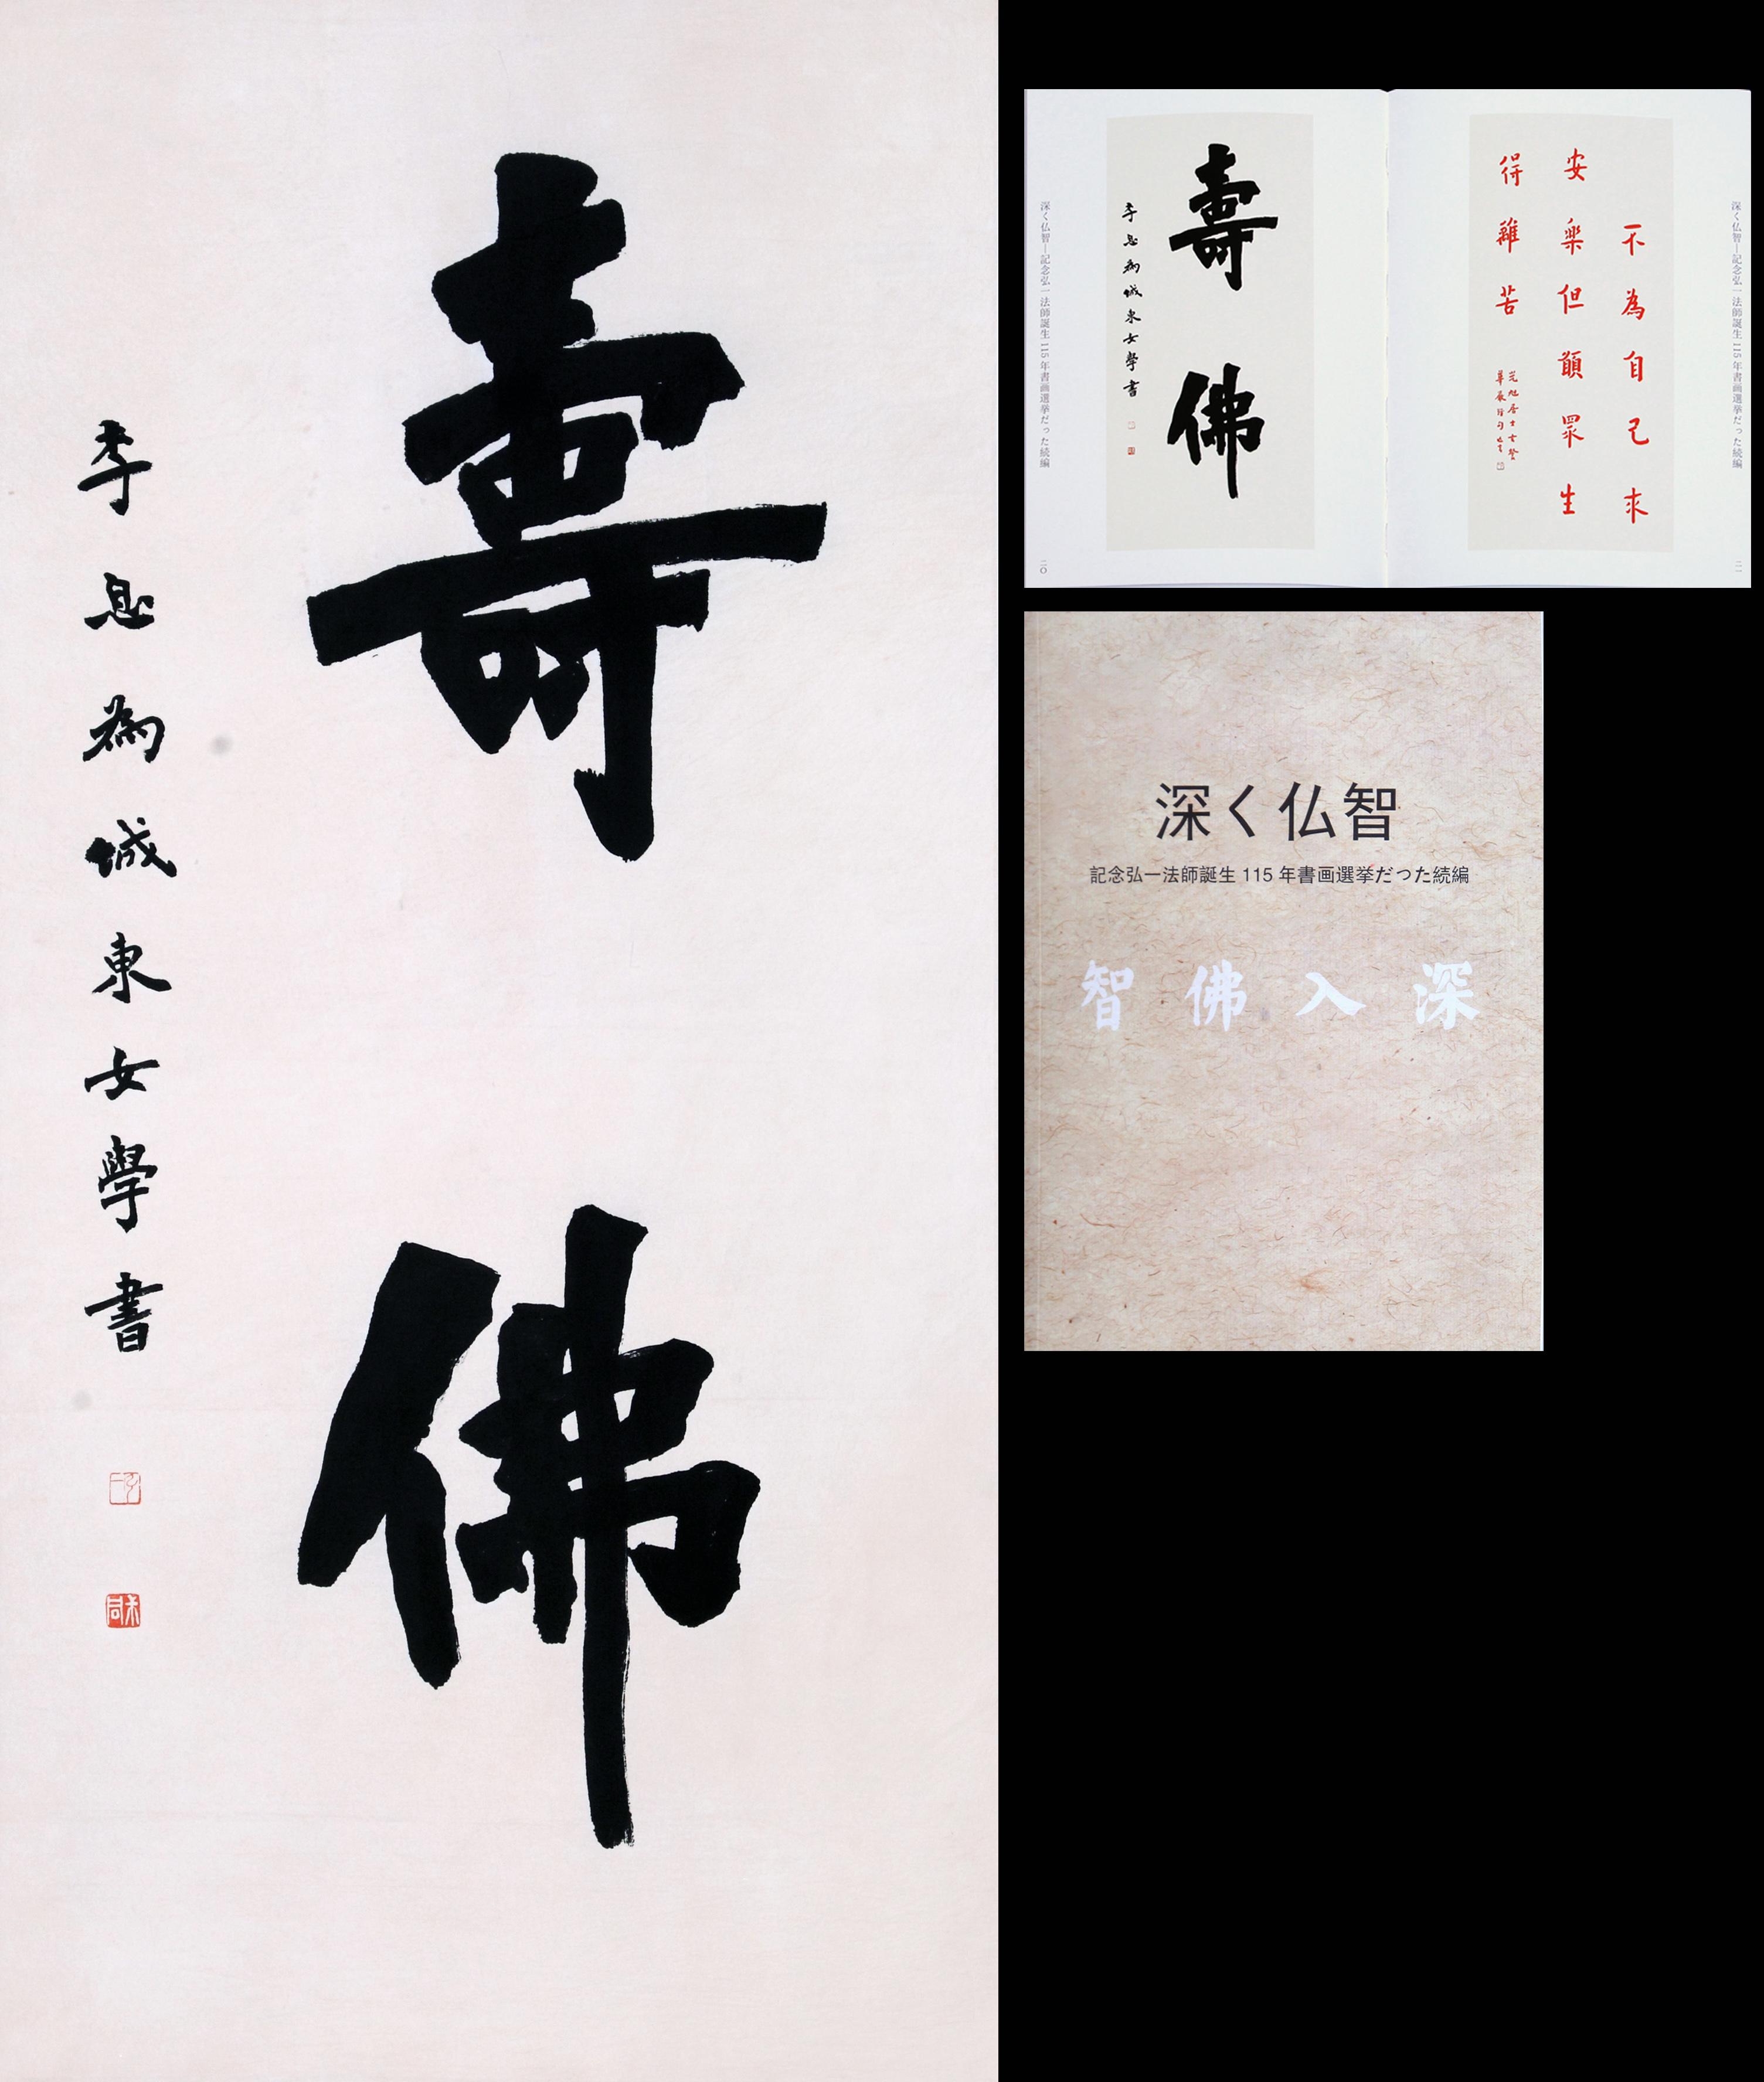 壽佛
李息為城東女學書
深く仏智—記念弘一法師誕生115年書画選挙だった続編
壽佛
李息為城東女學書
二〇
深く仏智—記念弘一法師誕生115年書画選挙だった続編
不為自己求
安樂但願眾生
得離苦
二一
深く仏智
記念弘一法師誕生 115 年書画選挙だった続編
智佛入深